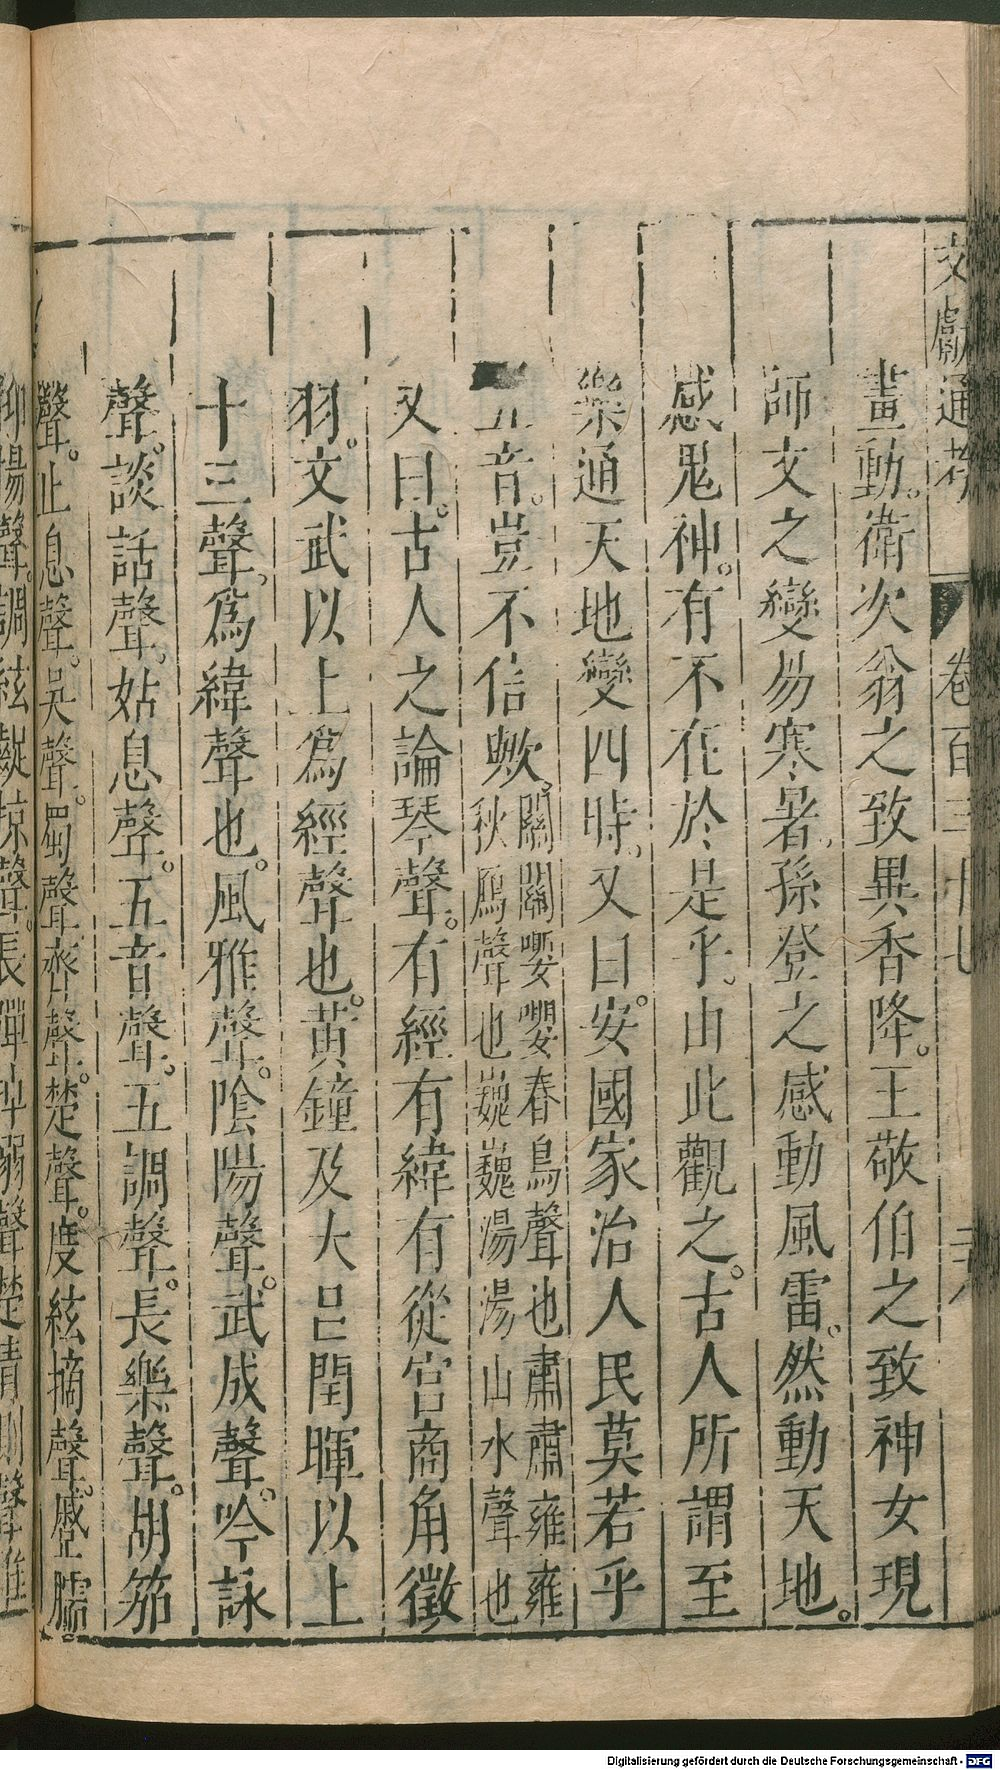 文獻通考 卷百三十七
晝動。衛次翁之致異香降。王敬伯之致神女現
師文之變易寒暑。孫登之感動風雷。然動天地。
感鬼神。有不在於是乎。由此觀之。古人所謂至
樂通天地變四時。又曰。安國家治人民莫若乎
五音。豈不信歟。關關嚶嚶春鳥聲也肅肅雍雍秋鴈聲也巍巍湯湯山水聲也
又曰。古人之論琴聲。有經有緯有從宮商角徵
羽。文武以上爲經聲也。黃鐘及大呂閏暉以上
十三聲。爲緯聲也。風雅聲。陰陽聲。武成聲。吟詠
聲。談話聲。姑息聲。五音聲。五調聲。長樂聲。胡笳
聲。止息聲。吳聲。蜀聲。齊聲。楚聲。度絃摘聲。蹙臑
抑揚聲。調絃齪掠聲。長彈聲楚清側聲
Digitalisierung gefördert durch die Deutsche Forschungsgemeinschaft - DFG